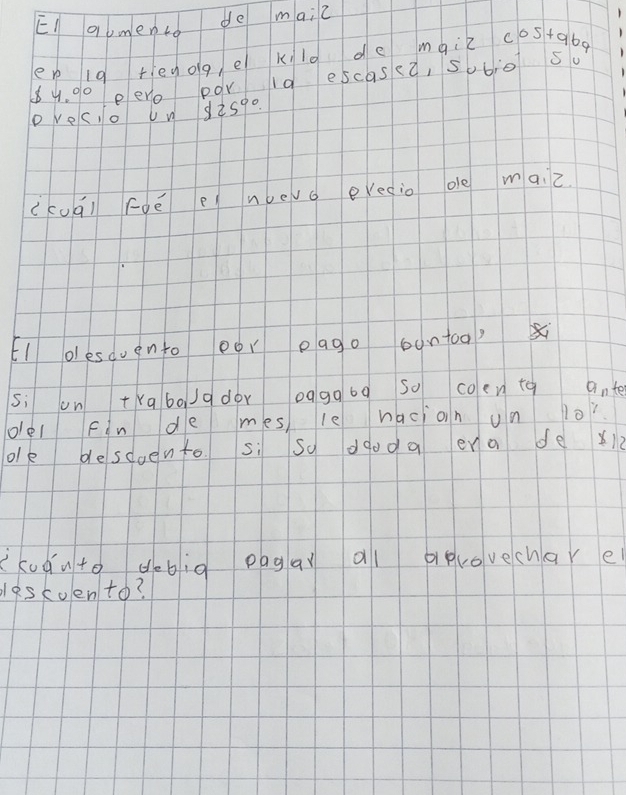 El aumento de maiz
en la tienda, el kilo de maiz costaba
$4.00 pero por la escasez, subio su
precio un $2500.
¿cuál Fué el nuevo precio de maiz.
El descuento por pago puntoal
Si un trabajador pagaba su coenta ante
del Fin de mes, le hacian un 10%
de descoento si su deoda era de $12
¿cuánto debia pagar al aprovechar el
descuento?